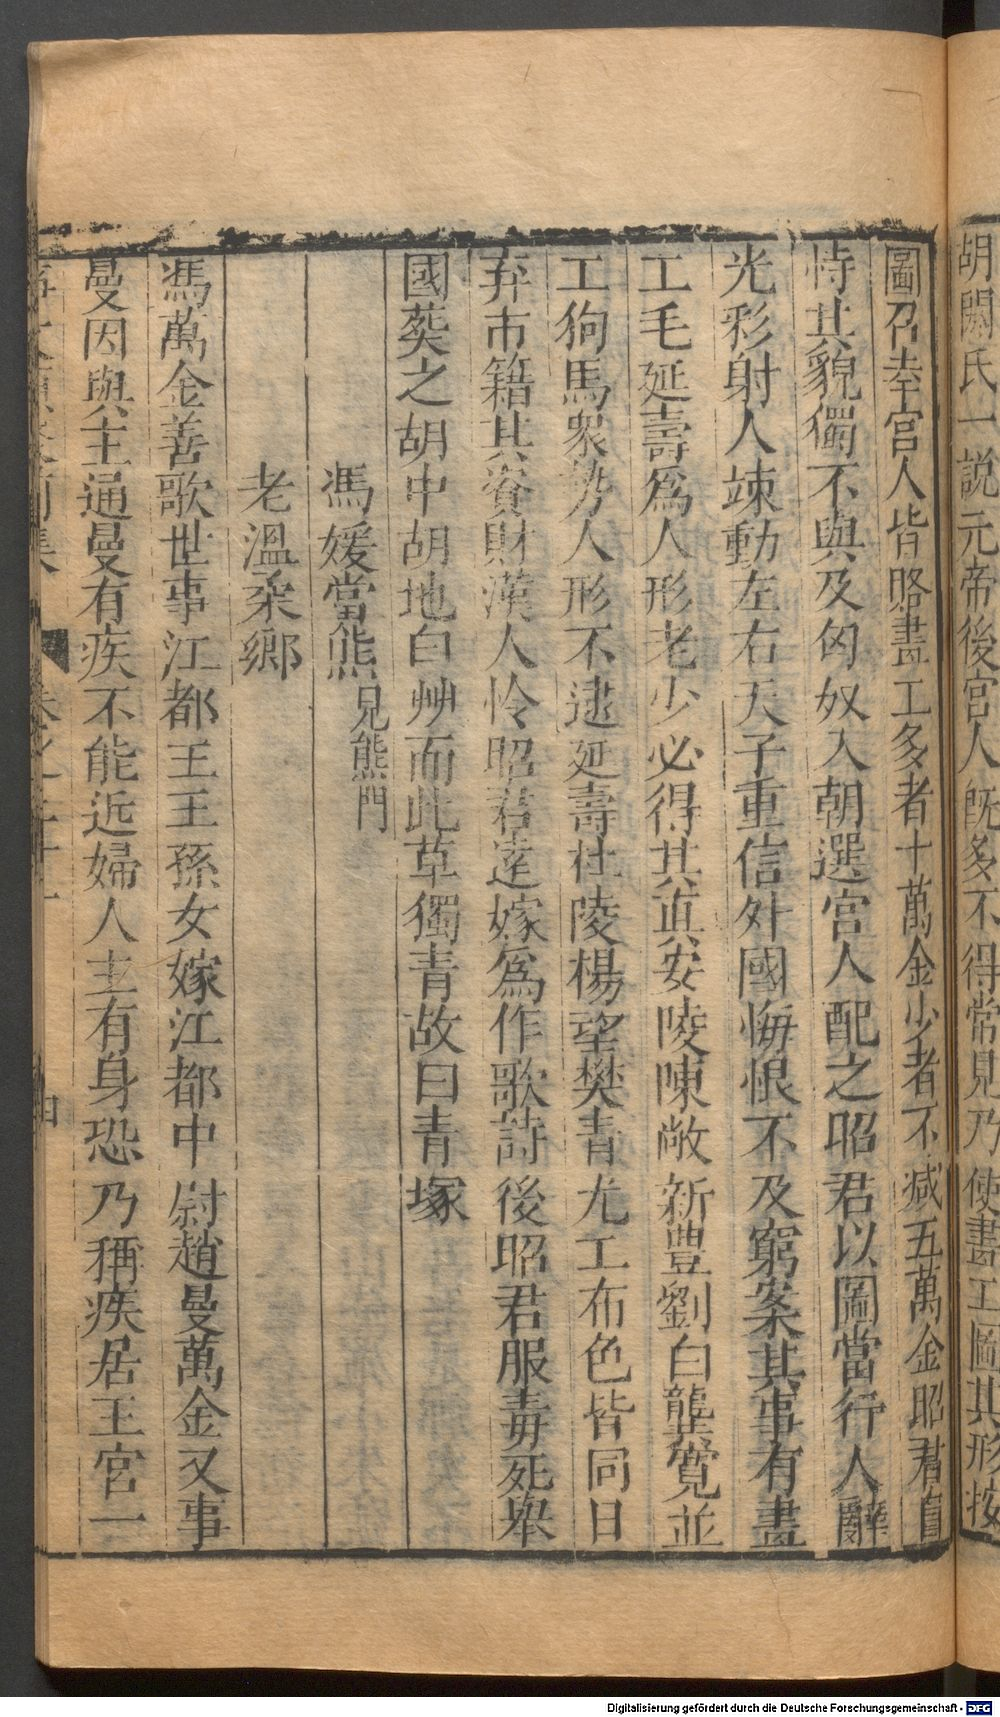 胡閼氏一説元帝後宮人既多不得常見乃使畫工圖其形按
圖召幸宮人皆賂畫工多者十萬金少者不减五萬金昭君自
恃其貌獨不與及匈奴入朝選宮人配之昭君以圖當行人辭
光彩射人竦動左右天子重信外國悔恨不及窮案其事有畫
工毛延壽爲人形老少必得其真安陵陳敞新豊劉白龔寛並
工狗馬衆勢人形不逮延壽杜陵楊望樊青尤工布色皆同日
弃市籍其資財漢人怜昭君逺嫁爲作歌詩後昭君服毒死舉
國葬之胡中胡地白艸而此草獨青故曰青塚
馮媛當熊見熊門
老溫柔鄉
馮萬金善歌世事江都王王孫女嫁江都中尉趙曼萬金又事
曼因與主通曼有疾不能近婦人主有身恐乃稱疾居王宮一
Digitalisierung gefördert durch die Deutsche Forschungsgemeinschaft - DFG